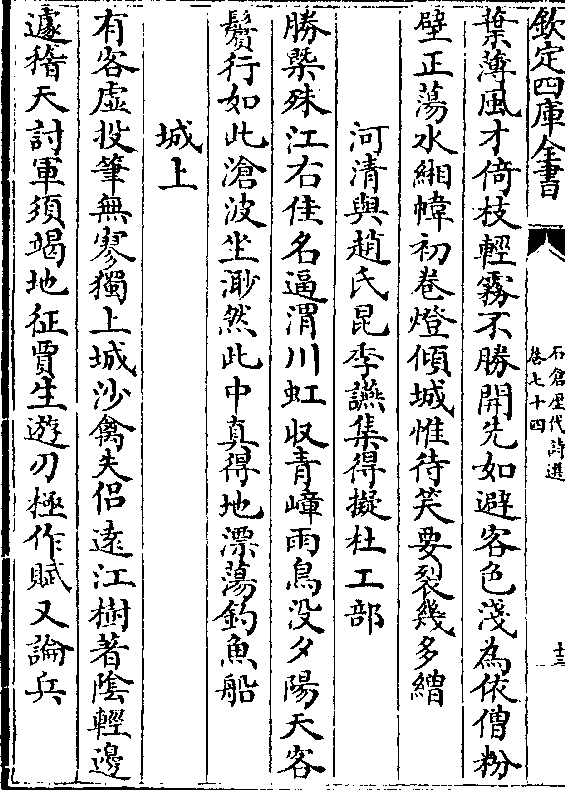 欽定四庫全書
石倉歷代詩選
卷七十四
十三
葉薄風才倚枝輕霧不勝開先如避客色淺為依僧粉
壁正蕩水緗幃初卷燈傾城惟待笑要裂幾多繒
河清與趙氏昆季讌集得擬杜工部
勝槩殊江右佳名逼渭川虹収青嶂雨鳥没夕陽天客
鬢行如此滄波坐渺然此中真得地漂蕩釣魚船
城上
有客虛投筆無寥獨上城沙禽失侶逺江樹著陰輕邊
遽稽天討軍須竭地征賈生遊刃極作賦又論兵